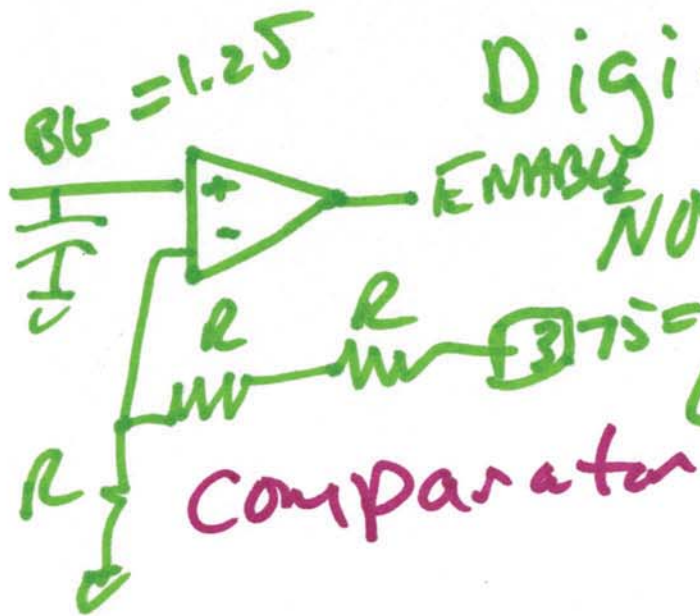 BG = 1.25
Digi
+
-
ENABLE
NO
R
R
3 75=
R
Comparator